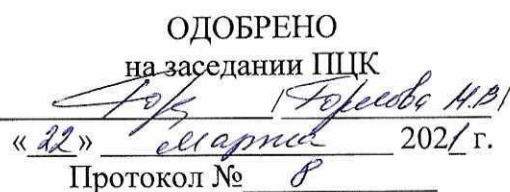 ОДОБРЕНО
на заседании ПЦК
/Горлова Н.В/
«22» марта 2021 г.
Протокол № 8